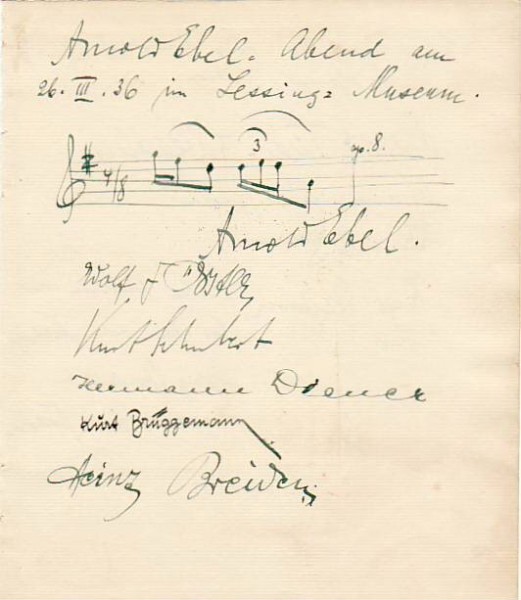 Arnold Ebel. Abend am
26. III. 36 im Lessing= Museum.
3 op. 8.
4/8
Arnold Ebel.
Wolf
Kurt Schubert
Hermann Diener
Kurt Brüggemann
Heinz Breiden